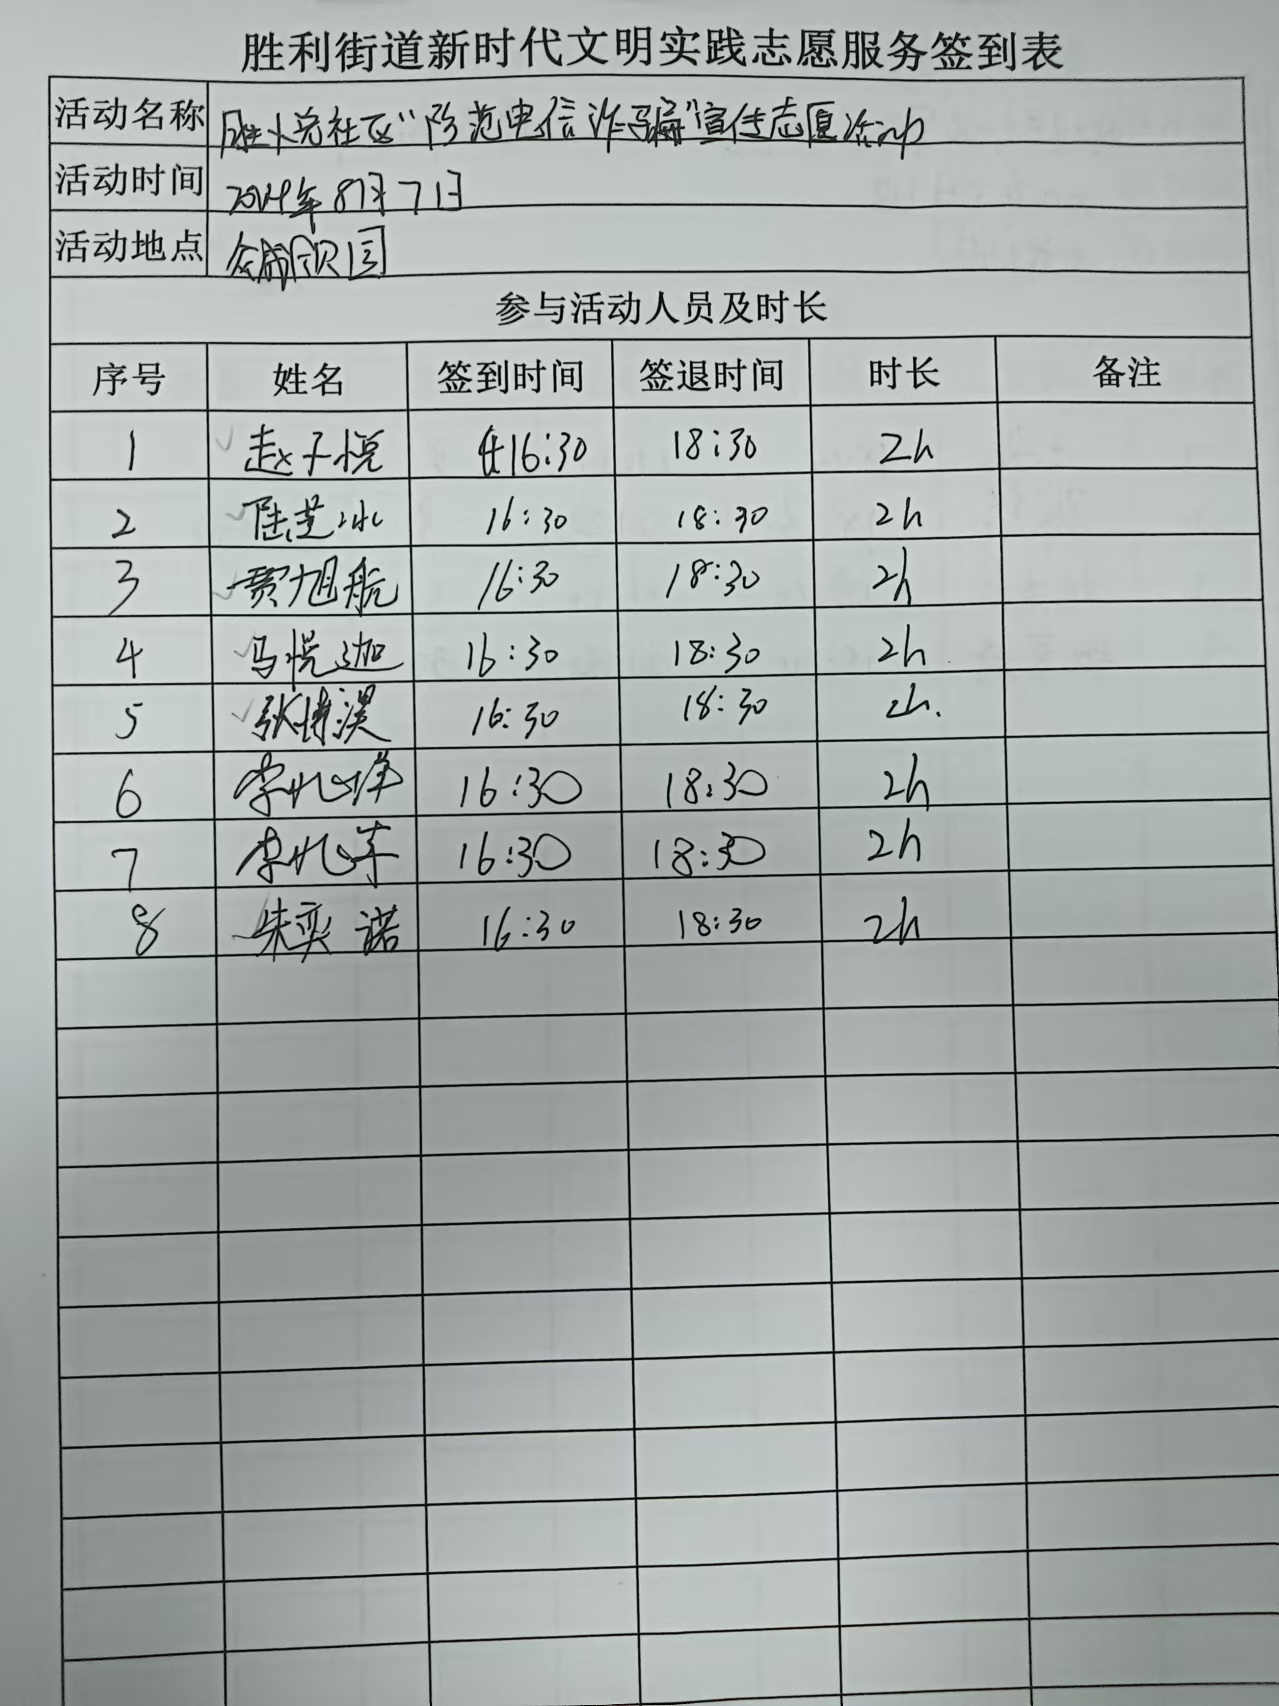 胜利街道新时代文明实践志愿服务签到表
活动名称 胜小苑社区“防范电信诈骗”宣传志愿活动
活动时间 2024年8月7日
活动地点
参与活动人员及时长
序号 姓名 签到时间 签退时间 时长 备注
1 赵子悦 16:30 18:30 2h
2 陆芝冰 16:30 18:30 2h
3 贾旭航 16:30 18:30 2h
4 马悦迦 16:30 18:30 2h
5 张博淏 16:30 18:30 2h.
6 李 16:30 18:30 2h
7 李 16:30 18:30 2h
8 朱奕诺 16:30 18:30 2h